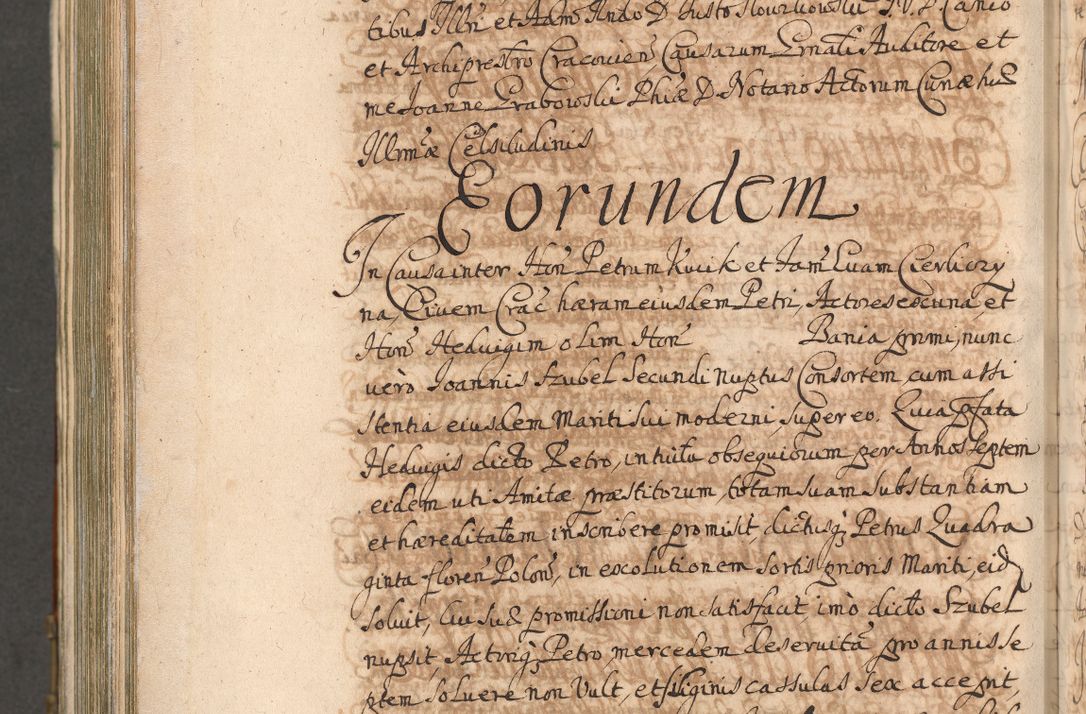 tibus Illri et Adm Rndo D. Justo Słowikowski I. V. D. Canco
et Archipresbro Cracovien Causarum Gnali Auditore et
me Joanne Grabowski Phiæ D. Notario Actorum Curiæ hus
Illmæ Celsitudinis
Eorundem
In Causa inter Hon Petrum Kucik et Fam Evam Cierliczy
na, Civem Crac hæram eiusdem Petri, Actores ex una, et
Hon Heduigim olim Hon Bania primi, nunc
uerò Joannis Szubel Secundi nuptus Consortem, cum assi
stentia eiusdem Mariti sui moderni, super eo. Quia pfata
Heduigis dicto Petro, intuitu obsequiorum per Annos septem
eidem uti Amitæ præstitorum, totam suam Substantiam
et hæreditatem inscribere promisit, dictusq Petrus Quadra
ginta floren Polon, in exolutionem sortis prioris Mariti, eid
soluit, Cui suæ promissioni non satisfacit, imò dicto Szubel
nupsit, Actoriq Petro, mercedem deseruitã pro annis se
ptem soluere non Vult, et siliginis cassulas sex accepit,